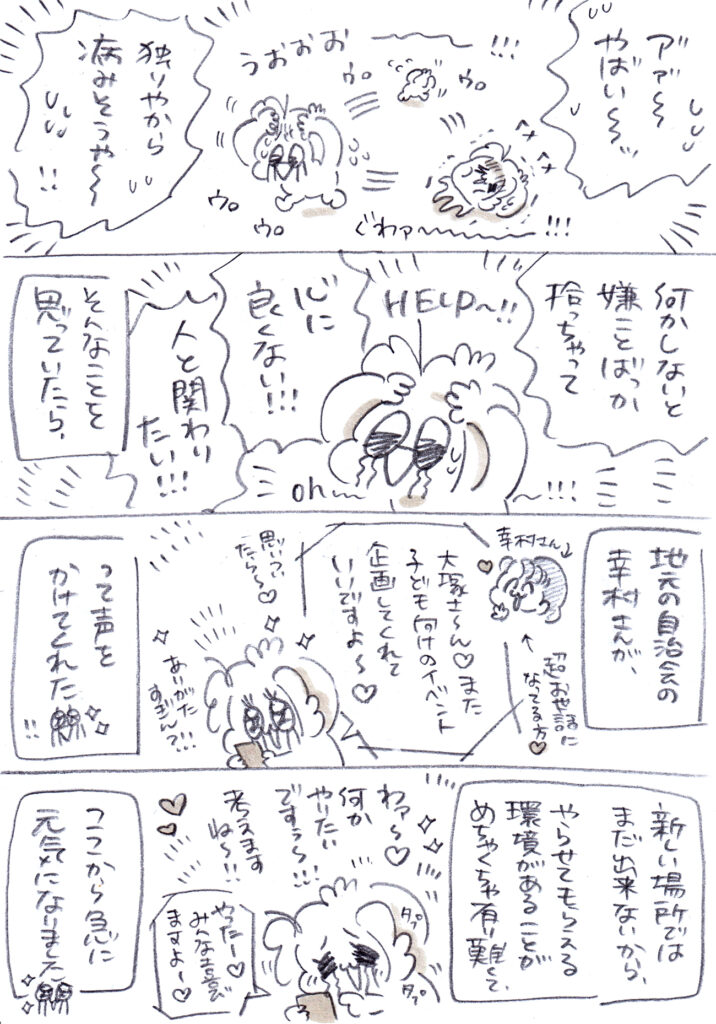 アァ〜〜
やばい〜〜
!!!
うおおお
ウロ
ウロ
ウロ
ウロ
ヘナ
ヘナ
ぐわァ〜〜〜!!!
独りやから
病みそうや〜〜
!!
何かしないと
嫌ことばっか
拾っちゃって
HELP〜!!
心に
良くない!!!
人と関わり
たい!!!
oh〜
〜!!!
そんなことを
思っていたら、
地元の自治会の
幸村さんが、
幸村さん
超お世話に
なってる方♡
大塚さ〜ん♡また
子ども向けのイベント
企画してくれて
いいですよ〜♡
思いつい
たら〜♡
ありがた
すぎんて!!
って声を
かけてくれた
!!
新しい場所では
まだ出来ないから、
やらせてもらえる
環境があることが
めちゃくちゃ有り難くて、
わァ〜♡
何か
やりたい
ですぅ〜!!!
考えます
ね〜!!
タプ
タプ
やったー♡
みんな喜び
ますよー♡
ここから急に
元気になりました